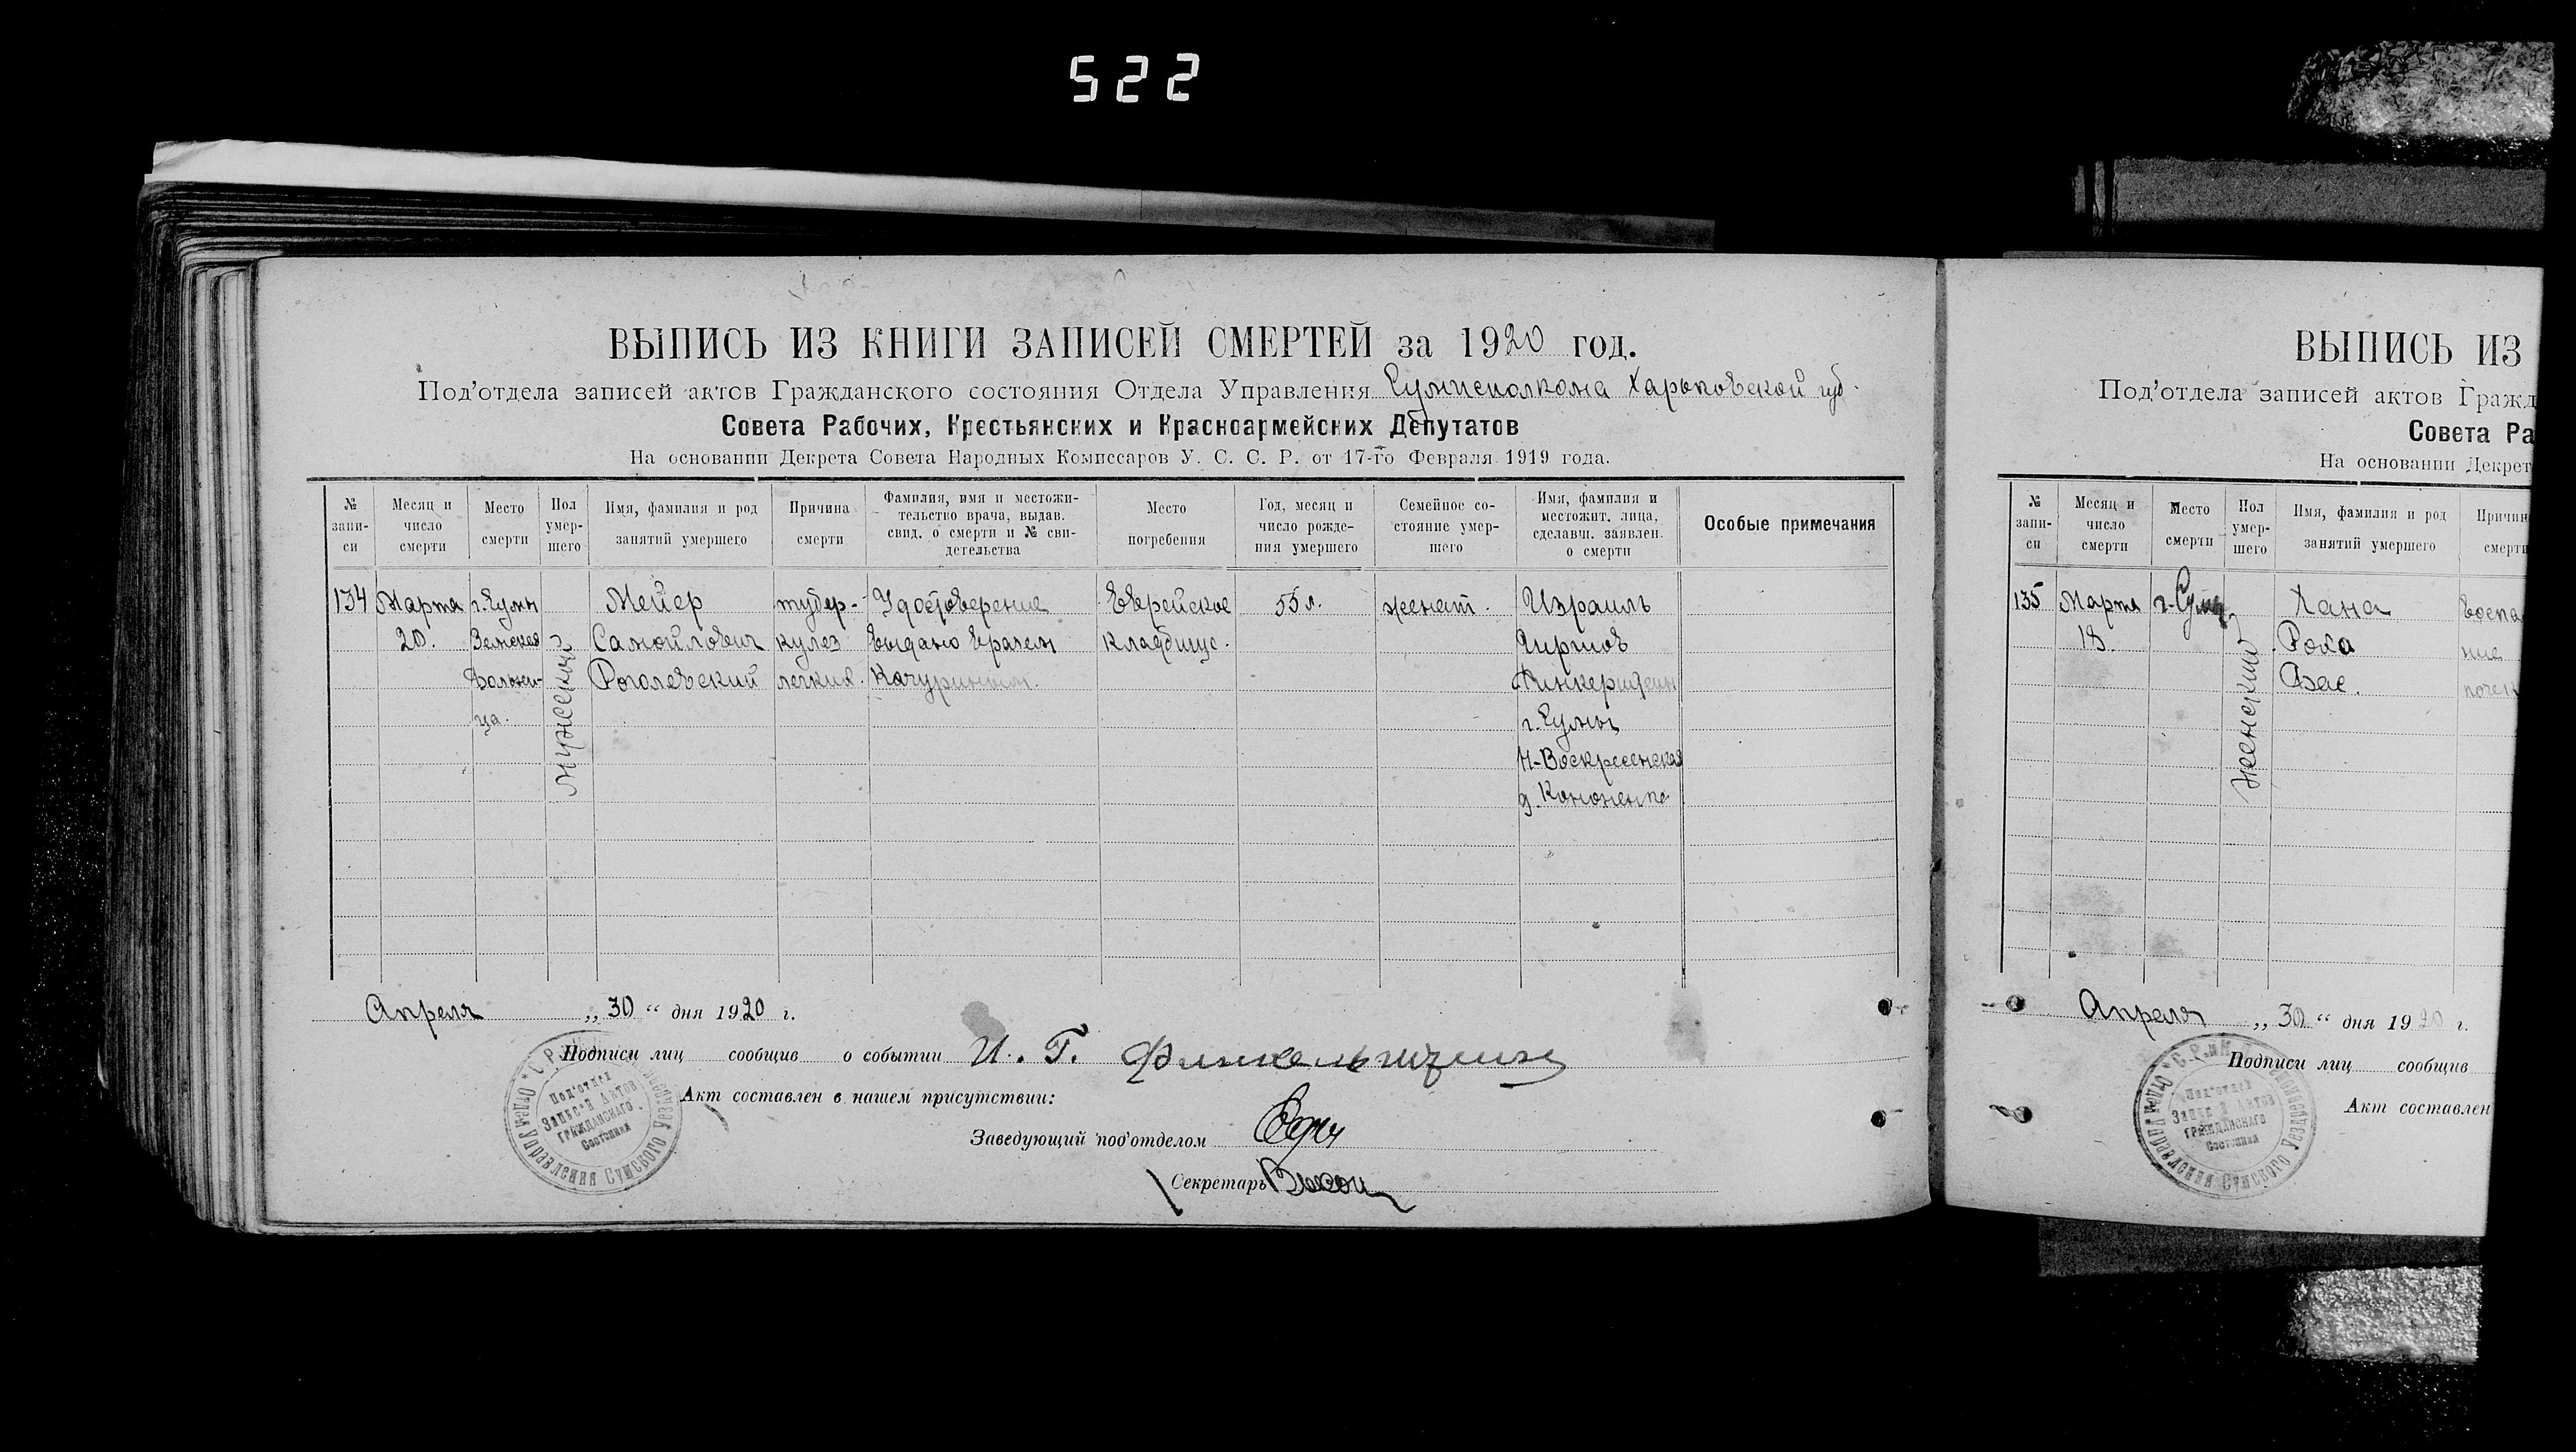 522
ВЫПИСЬ ИЗ КНИГИ ЗАПИСЕЙ СМЕРТЕЙ за 1920 год.
Под'отдела записей актов Гражданского состояния Отдела Управления Сумисполкома Харьковской губ.
Совета Рабочих, Крестьянских и Красноармейских Депутатов
На основании Декрета Совета Народных Комиссаров У. С. С. Р. от 17-го Февраля 1919 года.
№ запи-си
Месяц и число смерти
Место смерти
Пол умер-шего
Имя, фамилия и род занятий умершего
Причина смерти
Фамилия, имя и местожи-тельство врача, выдав. свид. о смерти и № сви-детельства
Место погребения
Год, месяц и число рожде-ния умершего
Семейное со-стояние умер-шего
Имя, фамилия и местожит. лица, сделавш. заявлен. о смерти
Особые примечания
134
Марта
20.
г. Сумы
Земская
больни-
ца.
мужеский
Мейер
Самойлович
Роголевский
тубер-
кулез
легких.
Удостоверение
выдано врачем
Качуриным.
Еврейское
кладбище.
55 л.
женат.
Израиль
Гиршов
г. Сумы
Н-Воскресенская
д. Кононенко
Апреля „ 30 “ дня 1920 г.
Подписи лиц сообщив о событии И. Г. Финкельштейн
Акт составлен в нашем присутствии:
Заведующий под'отделом
Секретарь
Под'отдел
Записей Актов
Гражданскаго
Состояния
Отдел Управления Сумского Уездного
ВЫПИСЬ ИЗ
Под'отдела записей актов Гражд
Совета Ра
На основании Декрет
№ запи-си
Месяц и число смерти
Место смерти
Пол умер-шего
Имя, фамилия и род занятий умершего
Причин
смерти
135
Марта
18.
г. Сумы
женский
Хана
Роха
воспа
ние
почек
Апреля „ 30 “ дня 1920 г.
Подписи лиц сообщив
Акт составлен
Под'отдел
Записей Актов
Гражданскаго
Состояния
Отдел Управления Сумского Уездного